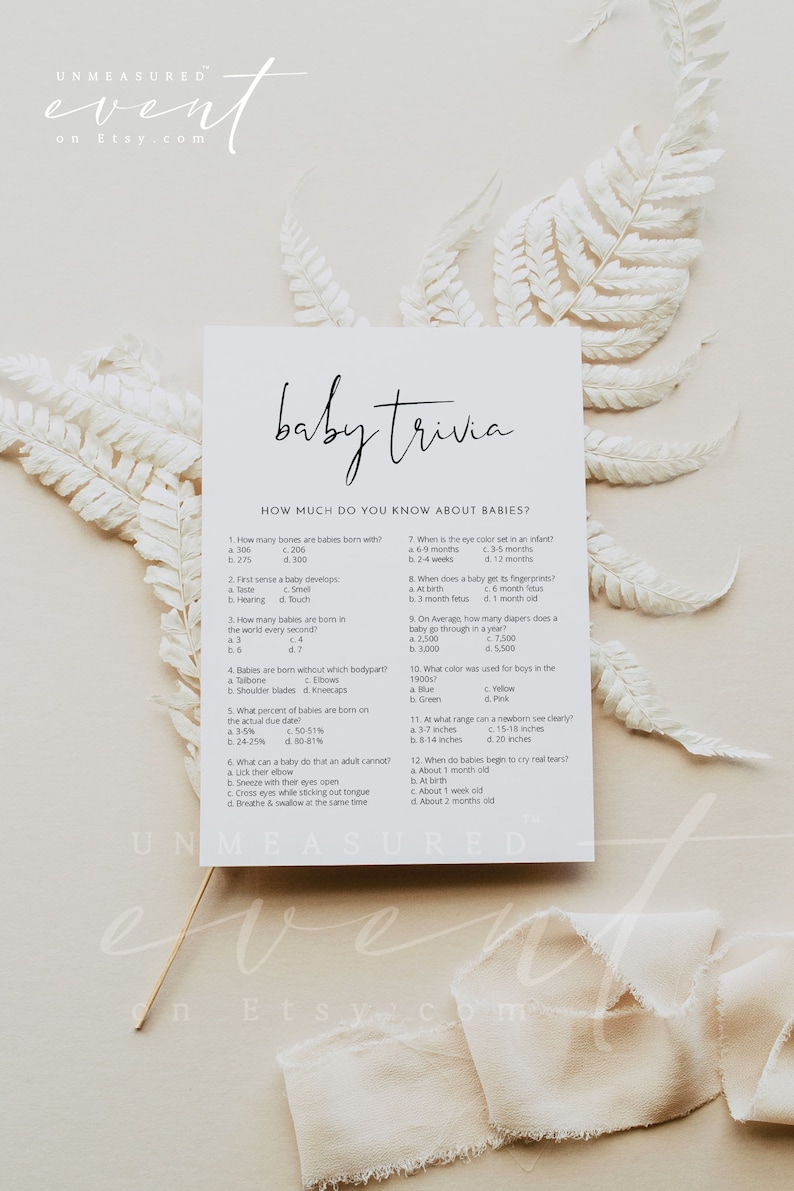 UNMEASURED™
event
on Etsy.com
baby trivia
HOW MUCH DO YOU KNOW ABOUT BABIES?
1. How many bones are babies born with?
a. 306 c. 206
b. 275 d. 300
2. First sense a baby develops:
a. Taste c. Smell
b. Hearing d. Touch
3. How many babies are born in
the world every second?
a. 3 c. 4
b. 6 d. 7
4. Babies are born without which bodypart?
a. Tailbone c. Elbows
b. Shoulder blades d. Kneecaps
5. What percent of babies are born on
the actual due date?
a. 3-5% c. 50-51%
b. 24-25% d. 80-81%
6. What can a baby do that an adult cannot?
a. Lick their elbow
b. Sneeze with their eyes open
c. Cross eyes while sticking out tongue
d. Breathe & swallow at the same time
7. When is the eye color set in an infant?
a. 6-9 months c. 3-5 months
b. 2-4 weeks d. 12 months
8. When does a baby get its fingerprints?
a. At birth c. 6 month fetus
b. 3 month fetus d. 1 month old
9. On Average, how many diapers does a
baby go through in a year?
a. 2,500 c. 7,500
b. 3,000 d. 5,500
10. What color was used for boys in the
1900s?
a. Blue c. Yellow
b. Green d. Pink
11. At what range can a newborn see clearly?
a. 3-7 inches c. 15-18 inches
b. 8-14 inches d. 20 inches
12. When do babies begin to cry real tears?
a. About 1 month old
b. At birth
c. About 1 week old
d. About 2 months old
UNMEASURED™
event
on Etsy.com